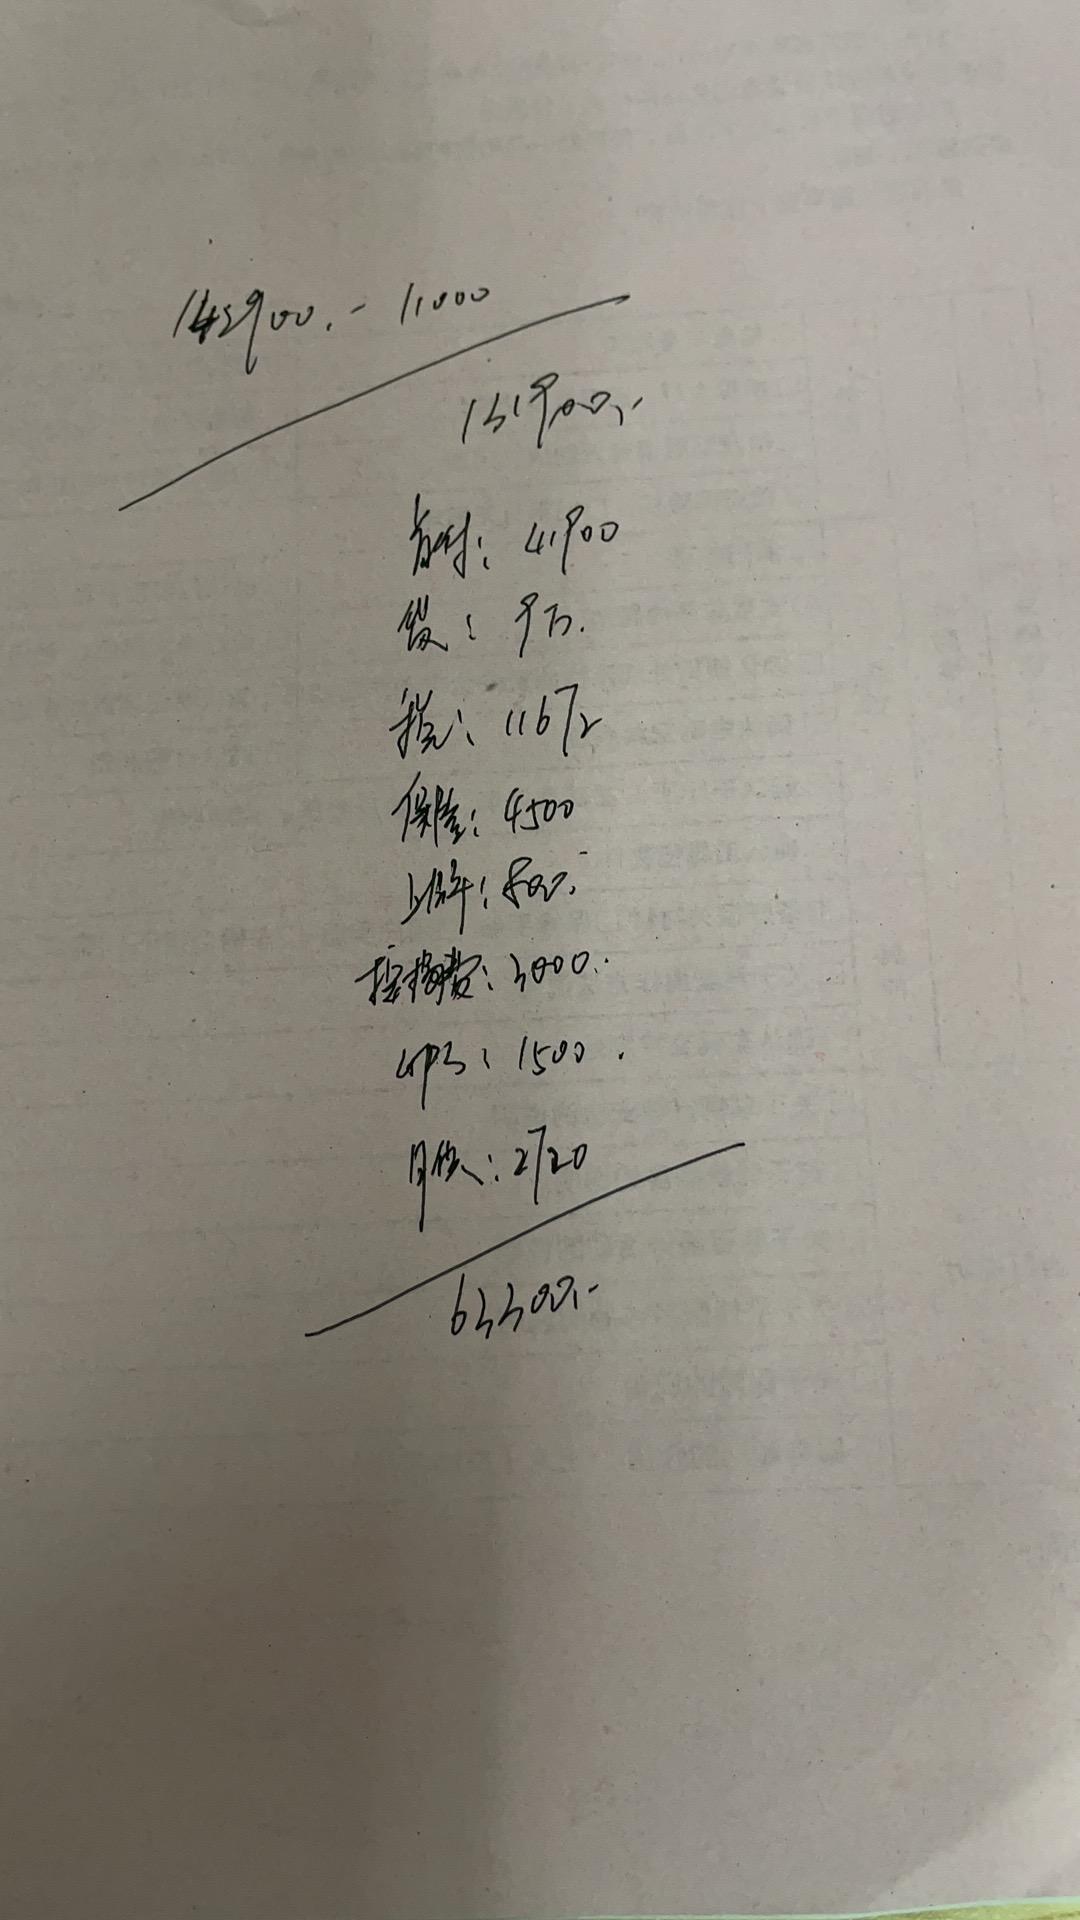 142900.- 11000
131900.-
首付: 41900
贷: 9万.
税: 11672
保险: 4500
上牌: 800.-
按揭费: 3000.
GPS: 1500.
月供: 2720
63300.-